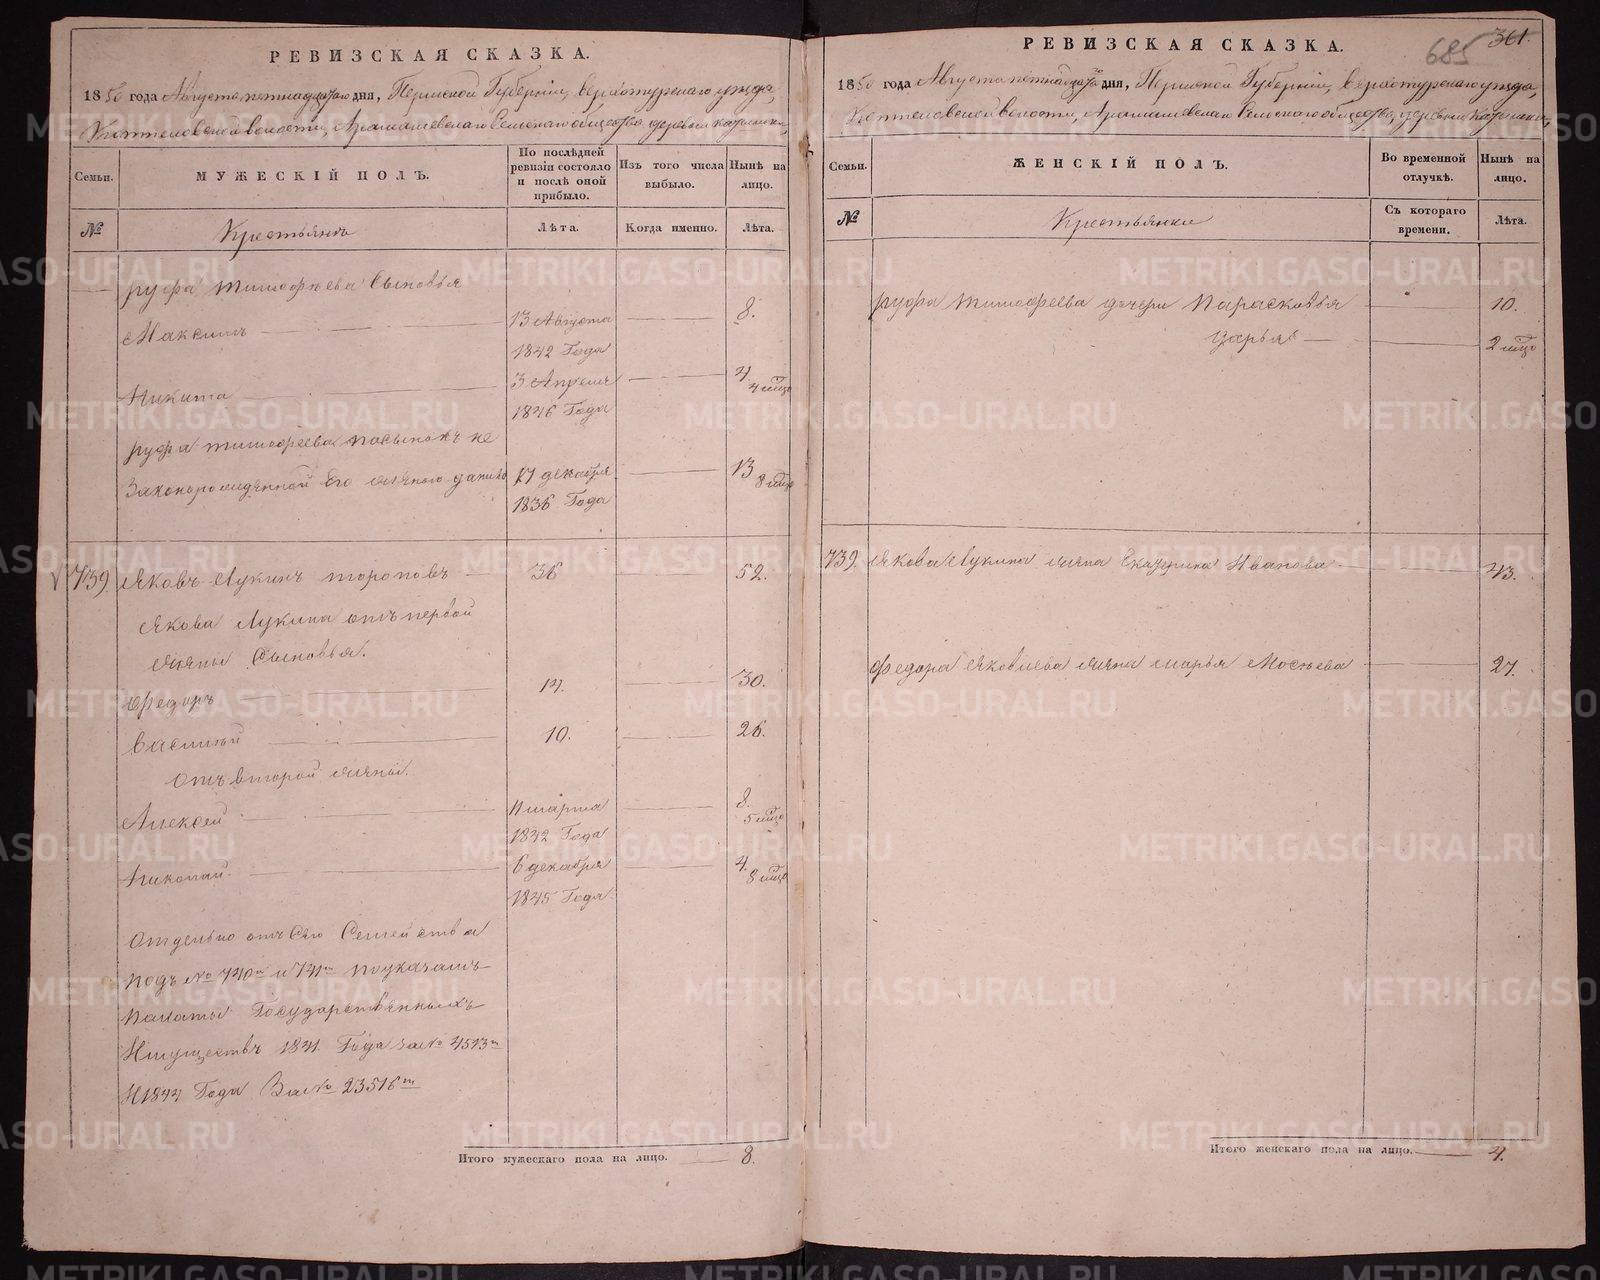 РЕВИЗСКАЯ СКАЗКА.
1850 года Августа пятнадцатаго дня, Пермской Губерніи, верхотурскаго уезда,
волости, Арамашевскаго Сельскаго общества деревни
Семьи.
МУЖЕСКІЙ ПОЛЪ.
По послѣдней ревизіи состояло и послѣ оной прибыло.
Изъ того числа выбыло.
Нынѣ на лицо.
№
Крестьянъ
Лѣта.
Когда именно.
Лѣта.
руфа тимофѣева Сыновья
Максимъ 13 Августа 1842 Года 8.
Никита 3 Апреля 1846 Года 4 4 мцо
руфа тимофеева пасынокъ не
Законорожденной Его жены данило 17 декабря 1836 Года 13 8 мцо
739 Яковъ Лукинъ тороповъ 36 52.
Якова Лукина отъ первой
жены Сыновья.
Федоръ 14. 30.
василий 10. 26.
Отъ второй жены.
Алексей марта 1842 Года 8. 5 мцо
Николай 6 декабря 1845 Года 4. 8 мцо
Отдельно отъ Сего Семейства
подъ № 740м и 741м по указамъ
палаты Государственныхъ
Имуществъ 1841 Года за № 4513м
И 1844 Года За № 23516м
Итого мужескаго пола на лицо. 8.
РЕВИЗСКАЯ СКАЗКА.
685 361.
1850 года Августа пятнадцатаго дня, Пермской Губерніи, верхотурскаго уезда,
волости, Арамашевскаго Сельскаго общества, деревни
Семьи.
ЖЕНСКІЙ ПОЛЪ.
Во временной отлучкѣ.
Нынѣ на лицо.
№
Крестьянки
Съ котораго времени.
Лѣта.
руфа тимофеева дочери Парасковья 10.
дарья 2 мцо
739. Якова Лукина жена Екатерина Иванова 43.
Федора Яковлева жена марья Мосеева 27.
Итого женскаго пола на лицо. 4.
METRIKI.GASO-URAL.RU